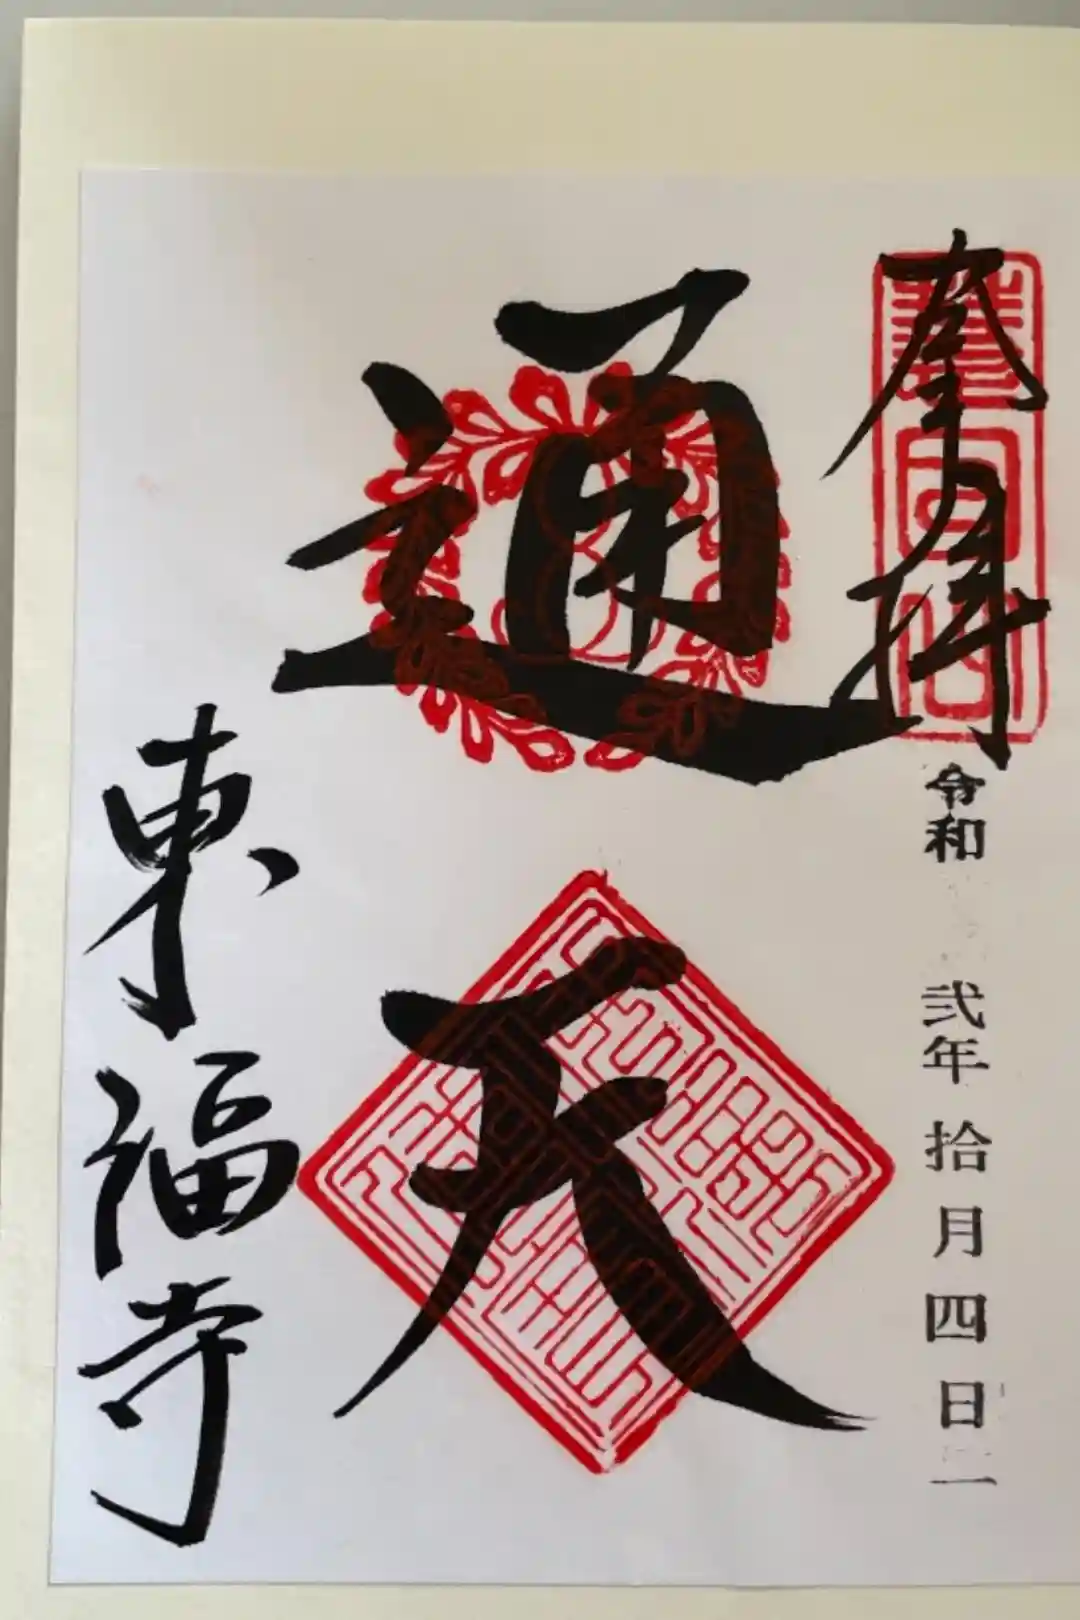 奉拝
令和 弐年 拾月四日
通天
東福寺